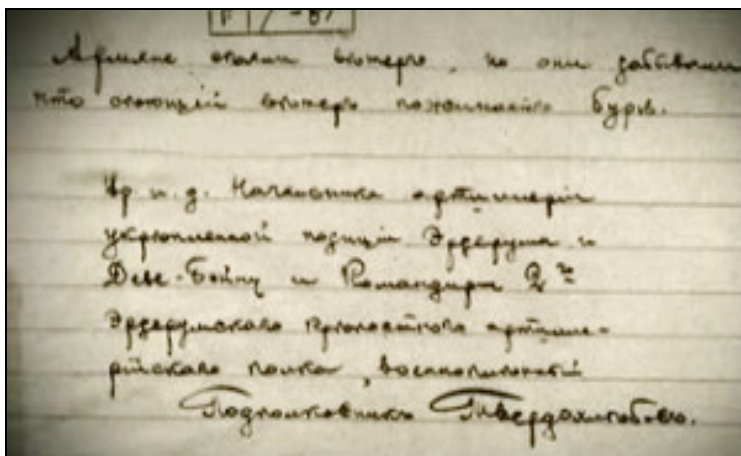 Армяне сѣяли вѣтеръ, но они забывали
что сѣющій вѣтеръ пожинаетъ бурю.
Вр. и. д. Начальника артиллеріи
укрѣпленной позиціи Эрзерума и
Деве-Бойну и Командиръ 2го
Эрзерумскаго крѣпостного артилле-
рійскаго полка, военноплѣнный
Подполковникъ Твердохлѣбовъ.